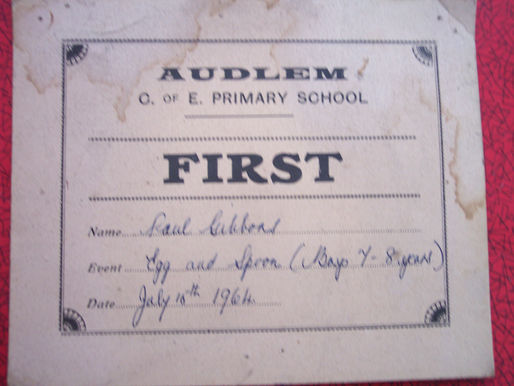 AUDLEM
C. OF E. PRIMARY SCHOOL
FIRST
Name Paul Gibbons
Event Egg and Spoon (Boys 7-8 years)
Date July 10th 1964.